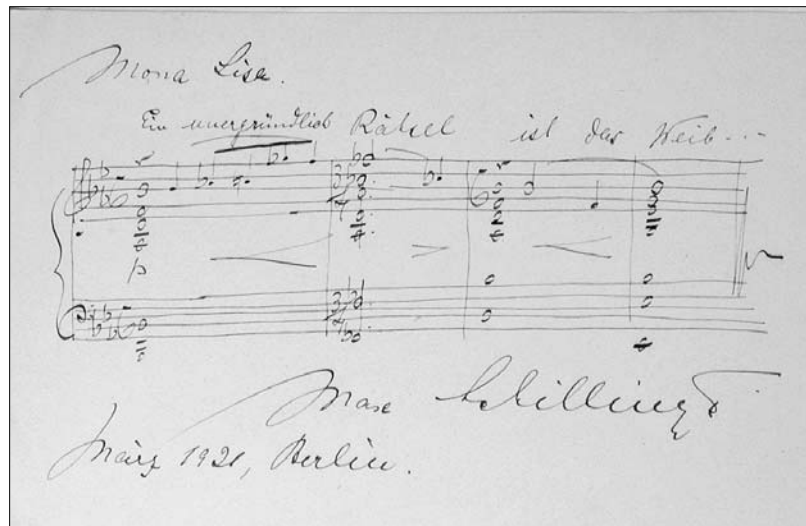 Mona Lisa.
Ein unergründlich Rätsel ist das Weib...
p
Max Schillings
März 1921, Berlin.